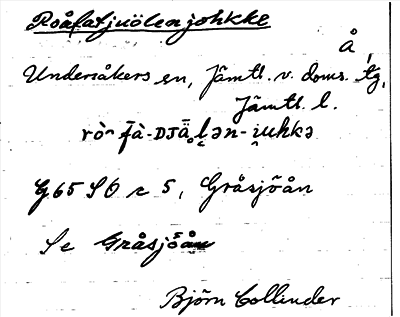 Roåfatjuölenjohkke
Å,
Undersåkers sn, Jämtl. v. doms. tg,
Jämtl. l.
rò̂ f̄à-DJä̊l̥ən-i̯uhkə
G65 SO r 5, Gråsjöån
Se Gråsjöån
Björn Collinder